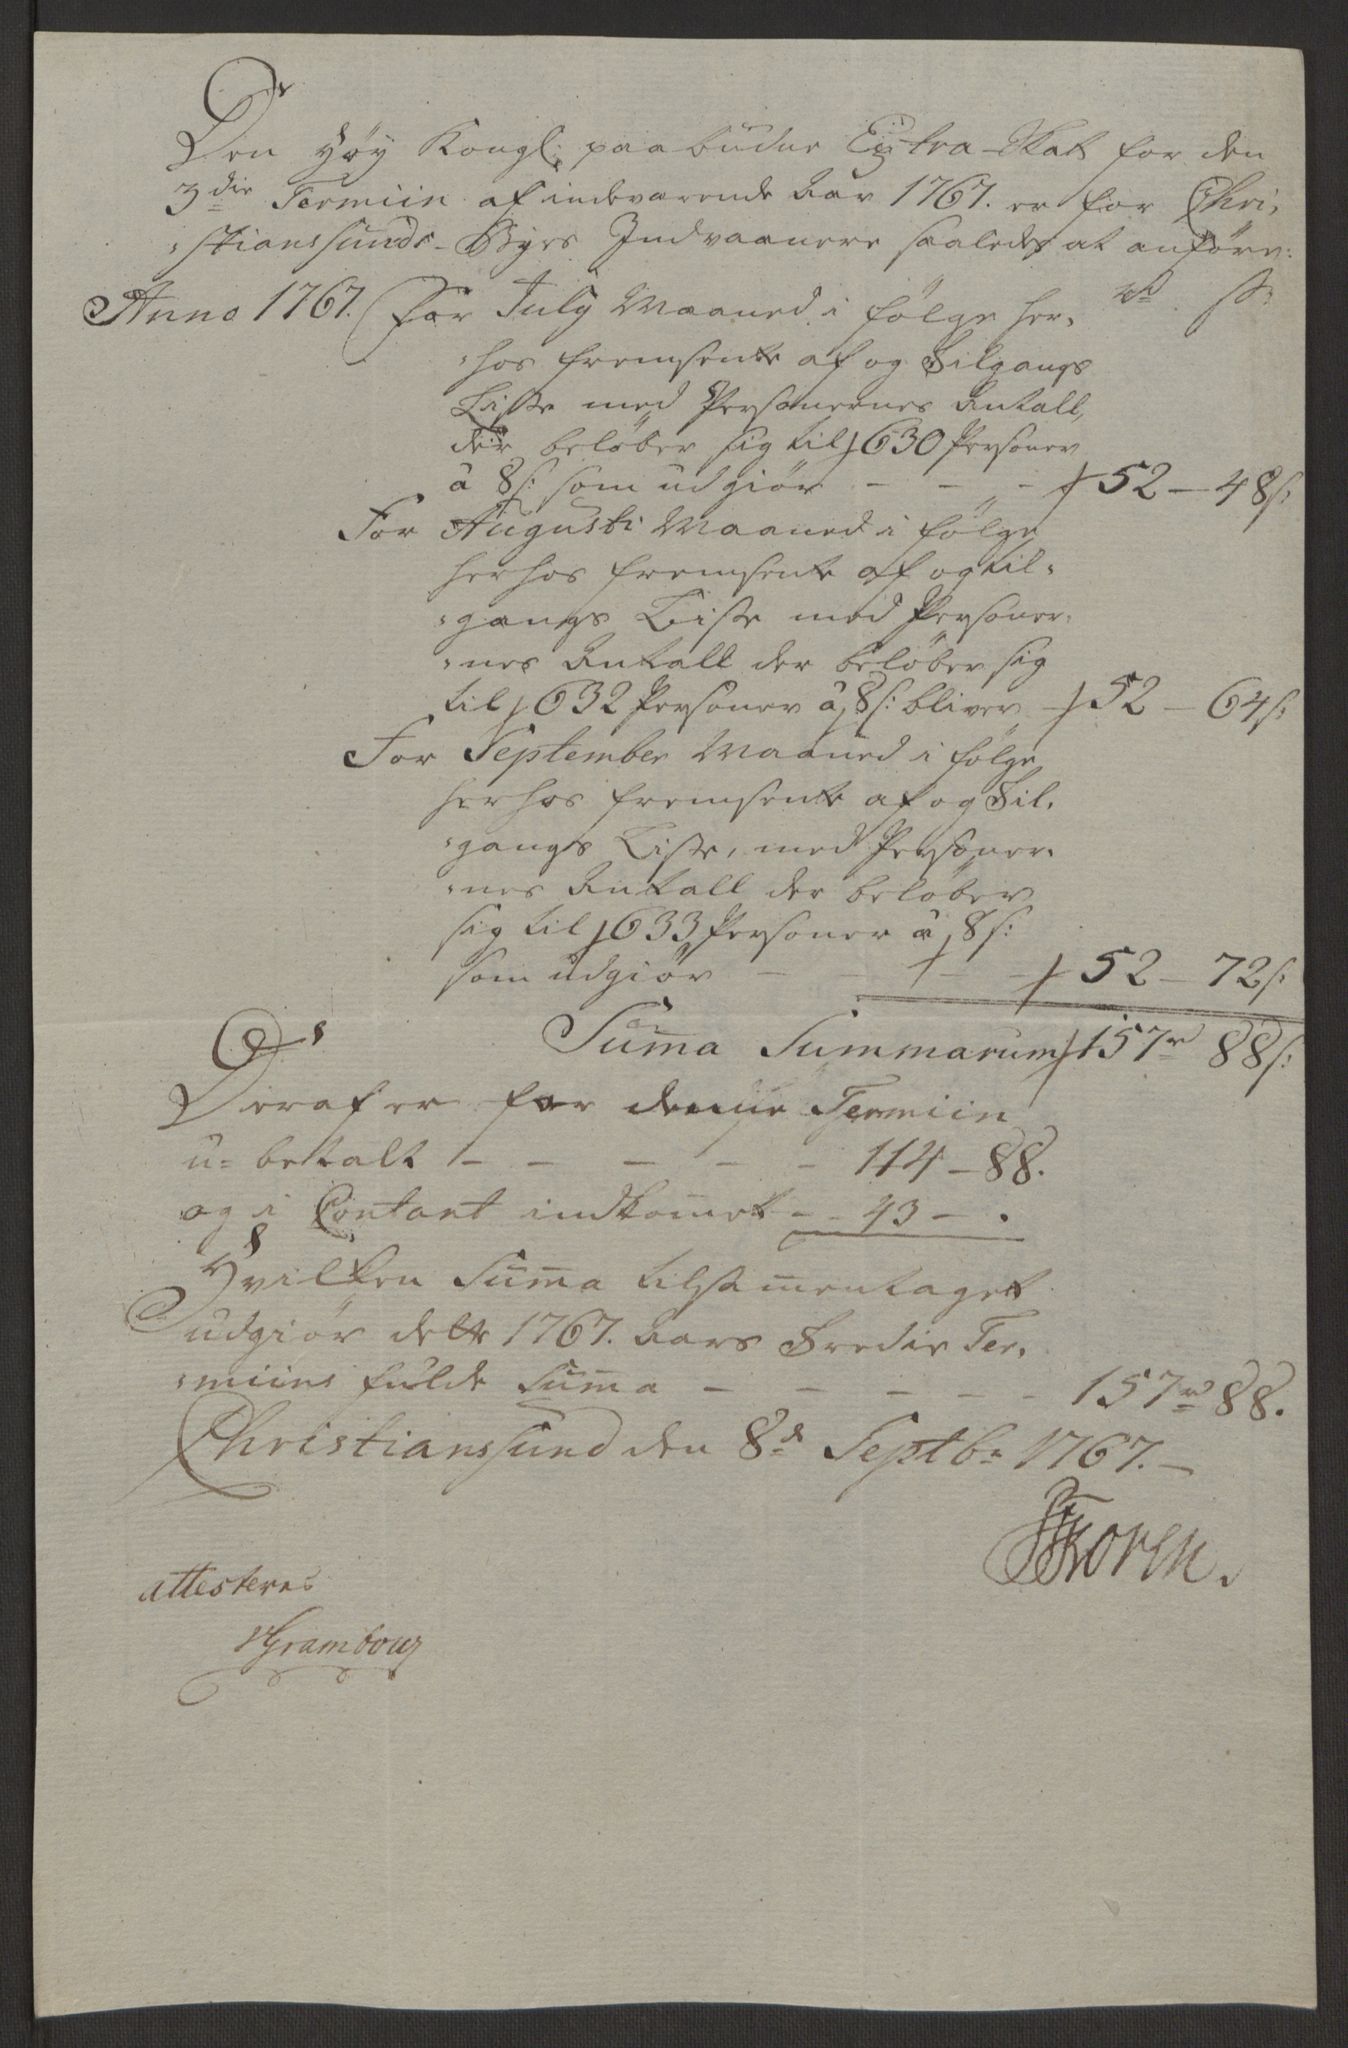 Den Høy Kongl: paabudne Extra-Skat for den
3die Termiin af indeværende Aar 1767. er for Chri-
stianssunds-Byes Indvaanere saaledes at anföre:
Anno 1767. For July Maaned i følge her- Rd s:
hos fremsente af og Tilgangs
Liste med Personernes Antall,
der beløber sig til 630 Personer
à 8s: som udgiör - - - 52 - 48s:
For Augusti Maaned i følge
herhos fremsente af og til-
gangs Liste med Personer-
nes Antall der beløber sig
til 632 Personer à 8s: bliver - 52 - 64s:
For September Maaned i følge
herhos fremsente af og Til-
gangs Liste, med Personer-
nes Antall der beløber
sig til 633 Personer à 8s:
som udgiör - - - - 52 - 72s:
Summa Summarum 157rd 88s:
Deraf er for denne Termiin
u-betalt - - - - - 114 - 88.
og i Contant indkommet - - 43 - .
Hvilken Summa tilsammentaget
udgiör dette 1767. Aars Tredie Ter-
miins fulde Summa - - - - - 157rd 88.
Christianssund den 8de Septbr 1767. -
Koren.
attesteres
Grambouz